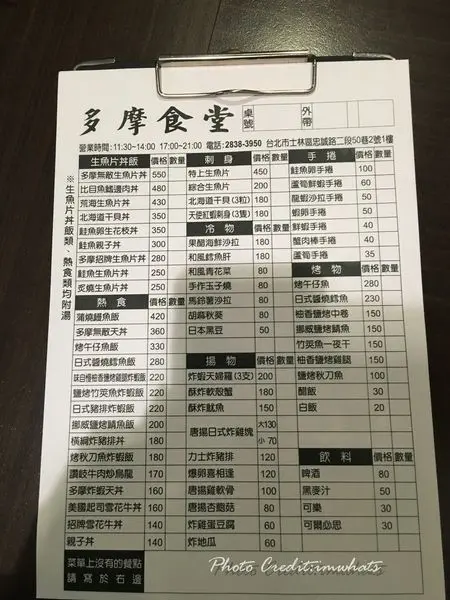 多摩食堂
桌號
外帶
營業時間:11:30~14:00 17:00~21:00 電話:2838-3950 台北市士林區忠誠路二段50巷2號1樓
※生魚片丼飯類、熱食類均附湯
生魚片丼飯 價格 數量
多摩無敵生魚片丼 550
比目魚鰭邊肉丼 480
荒海生魚片丼 430
北海道干貝丼 350
鮭魚卵生花枝丼 350
鮭魚親子丼 300
多摩招牌生魚片丼 280
鮭魚生魚片丼 250
炙燒生魚片丼 250
熱食 價格 數量
蒲燒鰻魚飯 420
多摩無敵天丼 360
烤午仔魚飯 330
日式醬燒鱈魚飯 280
味自慢柚香鹽烤雞腿炸蝦飯 220
鹽烤竹莢魚炸蝦飯 220
日式豬排炸蝦飯 220
挪威鹽烤鯖魚飯 200
橫綱炸豬排丼 180
烤秋刀魚炸蝦飯 180
讚岐牛肉炒烏龍 170
多摩炸蝦天丼 160
美國起司雪花牛丼 160
招牌雪花牛丼 140
親子丼 140
刺身 價格 數量
特上生魚片 450
綜合生魚片 200
北海道干貝(3粒) 180
天使紅蝦刺身(3隻) 180
冷物 價格 數量
果醋海鮮沙拉 180
和風鱈魚肝 180
和風青花菜 80
手作玉子燒 80
馬鈴薯沙拉 80
胡麻秋葵 80
日本黑豆 50
揚物 價格 數量
炸蝦天婦羅(3支) 200
酥炸軟殼蟹 180
酥炸魷魚 150
唐揚日式炸雞塊 大130
小 70
力士炸豬排 120
爆卵喜相逢 120
唐揚雞軟骨 100
唐揚杏鮑菇 80
炸雞蛋豆腐 60
炸地瓜 60
手捲 價格 數量
鮭魚卵手捲 100
蘆筍鮮蝦手捲 60
龍蝦沙拉手捲 50
蝦卵手捲 50
鮮蝦手捲 40
蟹肉棒手捲 40
蘆筍手捲 35
烤物 價格 數量
烤午仔魚 280
日式醬燒鱈魚 230
柚香鹽烤中卷 150
挪威鹽烤鯖魚 150
竹莢魚一夜干 150
柚香鹽烤雞腿 150
鹽烤秋刀魚 100
醋飯 30
白飯 20
飲料 價格 數量
啤酒 80
黑麥汁 50
可樂 30
可爾必思 30
菜單上沒有的餐點
請寫於右邊
Photo Credit:imwhats